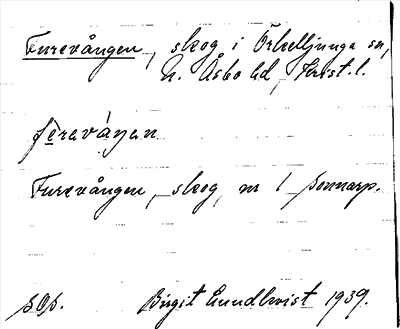 Furevången, skog i Örkelljunga sn,
N. Åsbo hd, Krist. l.
Furevången, skog, nr 1 Sonnarp.
sOp. Birgit Lundkvist 1939.